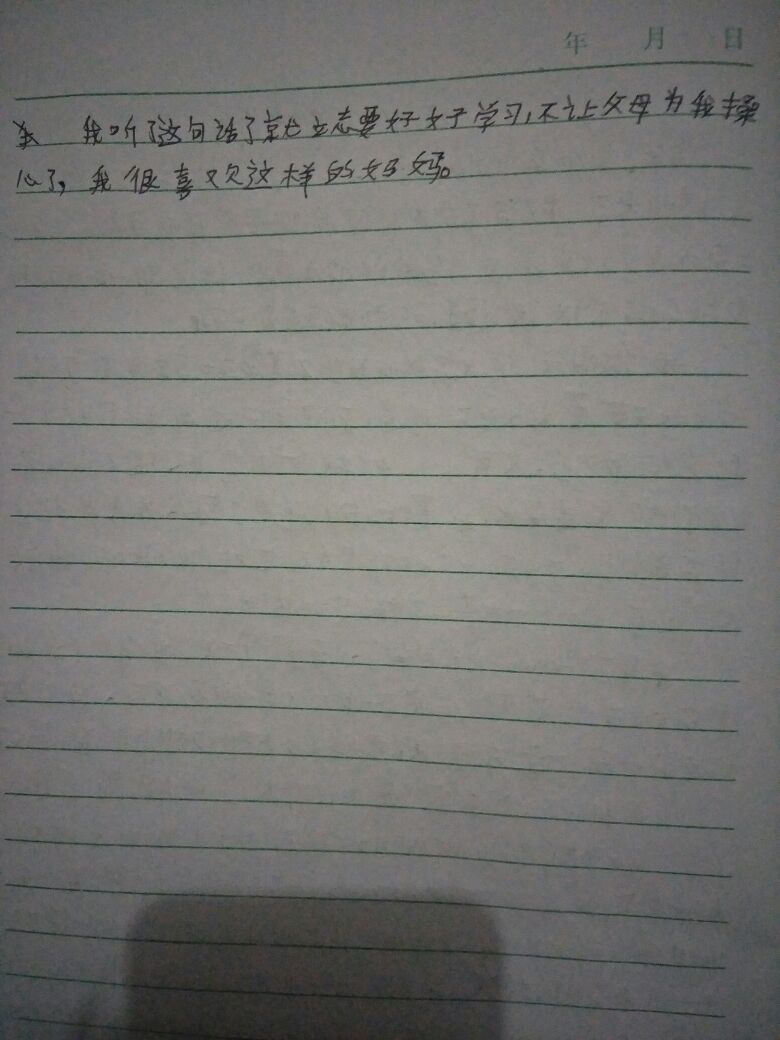 年 月 日
我听了这句话了就立志要好好学习,不让父母为我操
心了,我很喜欢这样的妈妈。